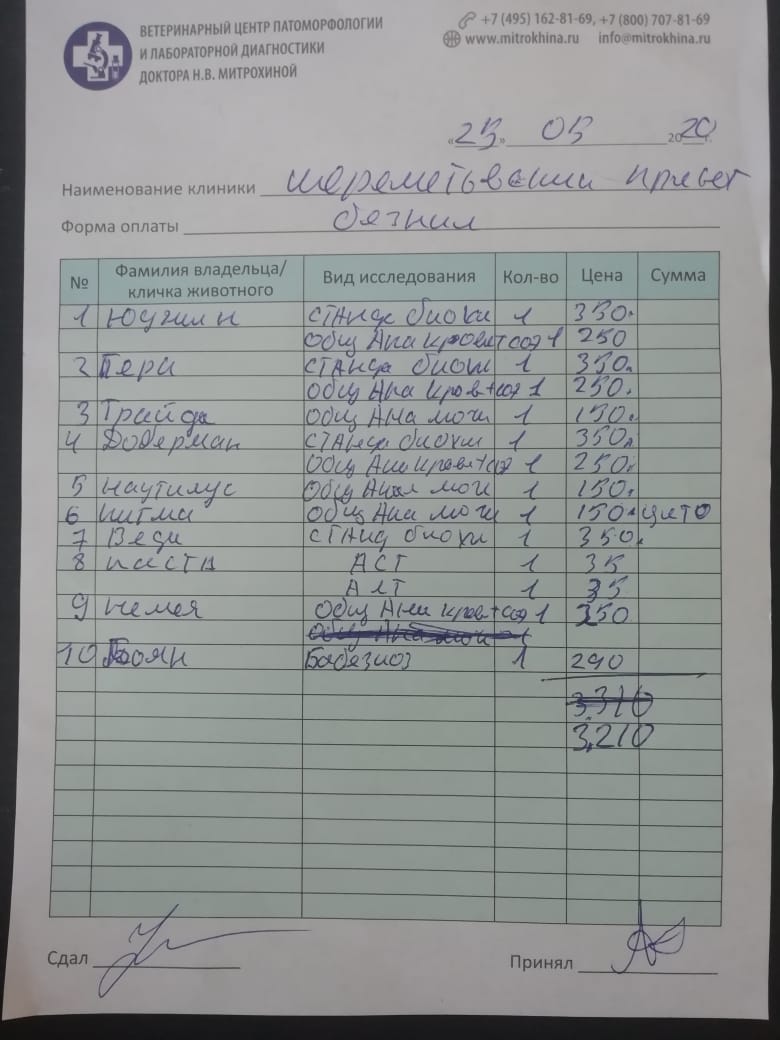 ВЕТЕРИНАРНЫЙ ЦЕНТР ПАТОМОРФОЛОГИИ
И ЛАБОРАТОРНОЙ ДИАГНОСТИКИ
ДОКТОРА Н.В. МИТРОХИНОЙ
+7 (495) 162-81-69, +7 (800) 707-81-69
www.mitrokhina.ru info@mitrokhina.ru
«25» 05 2020 г.
Наименование клиники приют
Форма оплаты безнал
№ Фамилия владельца/ кличка животного Вид исследования Кол-во Цена Сумма
1 Юджин станд биохи 1 350.
Общ Ана кров+соэ 1 250
2 Тери станд биохи 1 350.
Общ Ана кров+соэ 1 250.
3 Трайда Общ Ана мочи 1 150.
4 Доберман станд биохи 1 350.
Общ Ана кров+соэ 1 250.
5 Наутилус Общ Анал мочи 1 150.
6 Общ Ана мочи 1 150. цито
7 Веди станд биохи 1 350.
8 паста АСТ 1 35
АЛТ 1 35
9 немея Общ Ана кров+соэ 1 250
Общ Ана мочи 1
10 Боян Бабезиоз 1 290
3.310
3.210
Сдал
Принял